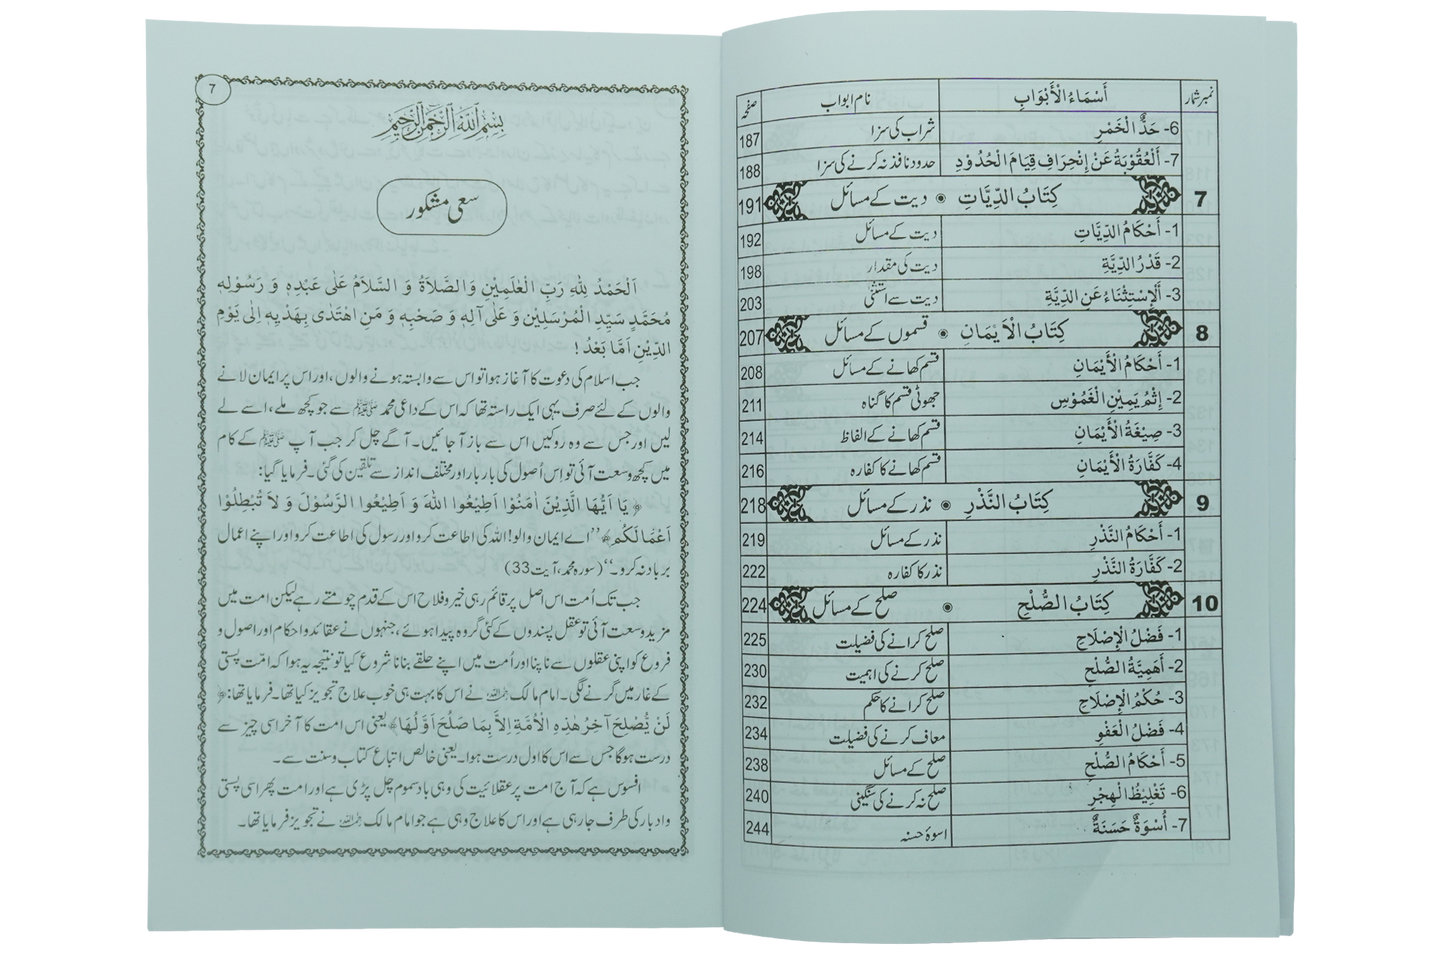 نمبر شمار أَسْمَاءُ الْأَبْوَابِ نام ابواب صفحہ
6- حَدُّ الْخَمْرِ شراب کی سزا 187
7- أَلْعُقُوْبَةُ عَنْ إِنْحِرَافِ قِيَامَ الْحُدُوْدِ حدود نافذ نہ کرنے کی سزا 188
7 كِتَابُ الدِّيَّاتِ دیت کے مسائل 191
1- أَحْكَامُ الدِّيَّاتِ دیت کے مسائل 192
2- قَدْرُ الدِّيَّةِ دیت کی مقدار 198
3- أَلْإِسْتِثْنَاءُ عَنِ الدِّيَّةِ دیت سے استثنیٰ 203
8 كِتَابُ الْاَيْمَانِ قسموں کے مسائل 207
1- أَحْكَامُ الْأَيْمَانِ قسم کھانے کے مسائل 208
2- إِثْمُ يَمِيْنِ الْغَمُوْسِ جھوٹی قسم کا گناہ 211
3- صِيْغَةُ الْأَيْمَانِ قسم کھانے کے الفاظ 214
4- كَفَّارَةُ الْأَيْمَانِ قسم کھانے کا کفارہ 216
9 كِتَابُ النَّذْرِ نذر کے مسائل 218
1- أَحْكَامُ النَّذْرِ نذر کے مسائل 219
2- كَفَّارَةُ النَّذْرِ نذر کا کفارہ 222
10 كِتَابُ الصُّلْحِ صلح کے مسائل 224
1- فَضْلُ الْإِصْلَاحِ صلح کرانے کی فضیلت 225
2- أَهَمِيَّةُ الصُّلْحِ صلح کرنے کی اہمیت 230
3- حُكْمُ الْإِصْلَاحِ صلح کرانے کا حکم 232
4- فَضْلُ الْعَفْوِ معاف کرنے کی فضیلت 234
5- أَحْكَامُ الصُّلْحِ صلح کے مسائل 238
6- تَغْلِيْظُ الْهِجْرِ صلح نہ کرنے کی سنگینی 240
7- أُسْوَةٌ حَسَنَةٌ اسوۂ حسنہ 244
7
بِسْمِ اللهِ الرَّحْمٰنِ الرَّحِيْمِ
سعی مشکور
اَلْحَمْدُ لِلّٰهِ رَبِّ الْعٰلَمِيْنَ وَالصَّلاَةُ وَ السَّلاَمُ عَلٰى عَبْدِهٖ وَ رَسُوْلِهٖ
مُحَمَّدٍ سَيِّدِ الْمُرْسَلِيْنَ وَ عَلٰى آلِهٖ وَ صَحْبِهٖ وَ مَنِ اهْتَدٰى بِهَدْيِهٖ اِلٰى يَوْمِ
الدِّيْنِ اَمَّا بَعْدُ !
جب اسلام کی دعوت کا آغاز ہوا تو اس سے وابستہ ہونے والوں، اور اس پر ایمان لانے
والوں کے لئے صرف یہی ایک راستہ تھا کہ اس کے داعی محمد ﷺ سے جو کچھ ملے، اسے لے
لیں اور جس سے وہ روکیں اس سے باز آجائیں۔ آگے چل کر جب آپ ﷺ کے کام
میں کچھ وسعت آئی تو اِس اُصول کی بار بار اور مختلف انداز سے تلقین کی گئی۔ فرمایا گیا:
﴿ يَا اَيُّهَا الَّذِيْنَ اٰمَنُوْا اَطِيْعُوا اللهَ وَ اَطِيْعُوا الرَّسُوْلَ وَ لاَ تُبْطِلُوْا
اَعْمَالَكُمْ ﴾ ’’اے ایمان والو! اللہ کی اطاعت کرو اور رسول کی اطاعت کرو اور اپنے اعمال
برباد نہ کرو۔‘‘ (سورہ محمد، آیت 33)
جب تک اُمت اس اصل پر قائم رہی خیر و فلاح اس کے قدم چومتے رہے لیکن امت میں
مزید وسعت آئی تو عقل پسندوں کے کئی گروہ پیدا ہوئے، جنہوں نے عقائد و احکام اور اصول و
فروع کو اپنی عقلوں سے ناپنا اور اُمت میں اپنے حلقے بنانا شروع کیا تو نتیجہ یہ ہوا کہ امّت پستی
کے غار میں گرنے لگی۔ امام مالک رحمہ اللہ نے اس کا بہت ہی خوب علاج تجویز کیا تھا۔ فرمایا تھا: ﴿
لَنْ يُّصْلِحَ آخِرَ هٰذِهِ الْاُمَّةِ اِلاَّ بِمَا صَلُحَ اَوَّلُهَا ﴾ یعنی اس امت کا آخر اسی چیز سے
درست ہو گا جس سے اس کا اول درست ہوا۔ یعنی خالص اتباع کتاب و سنت سے۔
افسوس ہے کہ آج امت پر عقلانیت کی وہی بادِ سموم چل پڑی ہے اور امت پھر اسی پستی
و ادبار کی طرف جا رہی ہے اور اس کا علاج وہی ہے جو امام مالک رحمہ اللہ نے تجویز فرمایا تھا۔